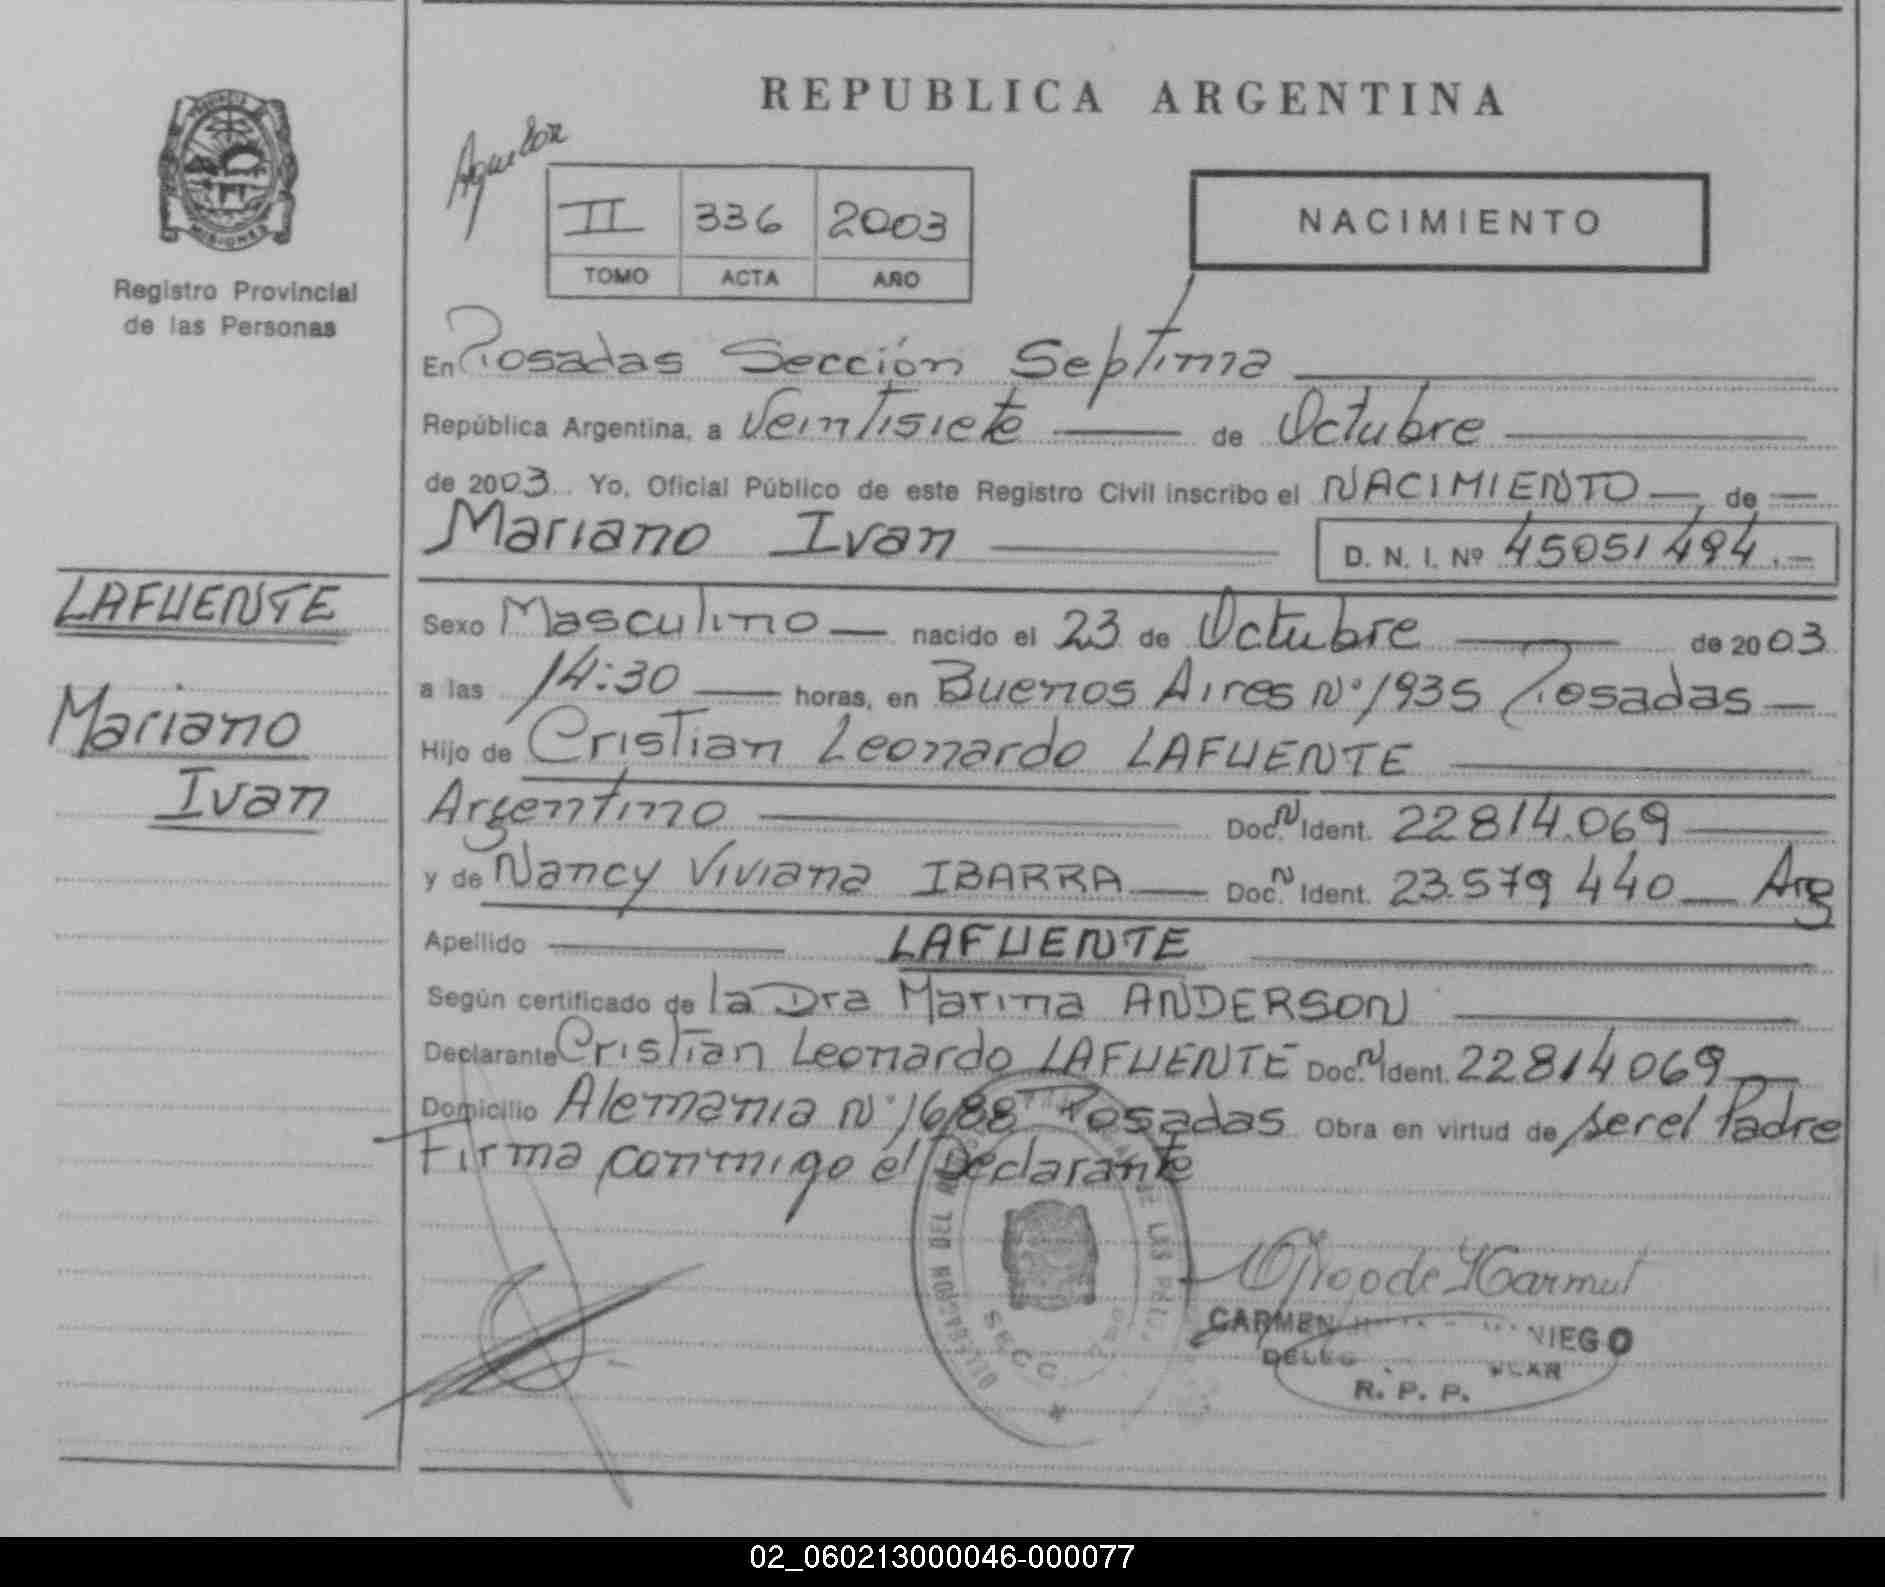 REPUBLICA ARGENTINA
MISIONES
Registro Provincial
de las Personas
II 336 2003
TOMO ACTA AÑO
NACIMIENTO
En Posadas Sección Septima
República Argentina, a Veintisiete de Octubre
de 2003 Yo, Oficial Público de este Registro Civil inscribo el NACIMIENTO de
Mariano Ivan D. N. I. Nº 45051494.-
LAFUENTE
Mariano
Ivan
Sexo Masculino nacido el 23 de Octubre de 2003
a las 14:30 horas, en Buenos Aires Nº 1935 Posadas
Hijo de Cristian Leonardo LAFUENTE
Argentino Doc. N Ident. 22814.069
y de Nancy Viviana IBARRA Doc. N Ident. 23.579 440 Arg
Apellido LAFUENTE
Según certificado de la Dra Marina ANDERSON
Declarante Cristian Leonardo LAFUENTE Doc. N Ident. 22814069
Domicilio Alemania Nº 1688 Posadas Obra en virtud de ser el Padre
Firma conmigo el Declarante
CARMEN
R. P. P.
02_060213000046-000077